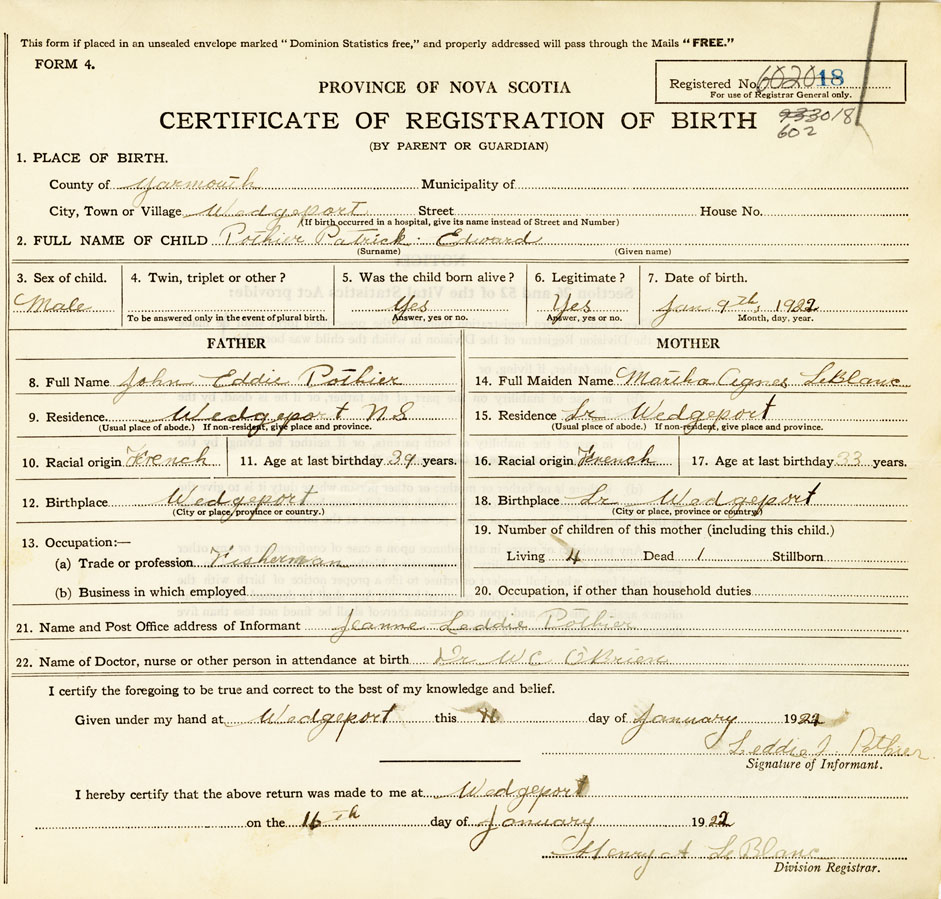 This form if placed in an unsealed envelope marked "Dominion Statistics free," and properly addressed will pass through the Mails "FREE."
FORM 4.
PROVINCE OF NOVA SCOTIA
Registered No. 602018
For use of Registrar General only.
CERTIFICATE OF REGISTRATION OF BIRTH
933018
602
(BY PARENT OR GUARDIAN)
1. PLACE OF BIRTH.
County of Yarmouth Municipality of
City, Town or Village Wedgeport Street House No.
(If birth occurred in a hospital, give its name instead of Street and Number)
2. FULL NAME OF CHILD Pothier Patrick Edward
(Surname) (Given name)
3. Sex of child. 4. Twin, triplet or other? 5. Was the child born alive? 6. Legitimate? 7. Date of birth.
Male Yes Yes Jan 9th, 1922
To be answered only in the event of plural birth. Answer, yes or no. Answer, yes or no. Month, day, year.
FATHER MOTHER
8. Full Name John Eddie Pothier 14. Full Maiden Name Martha Agnes LeBlanc
9. Residence Wedgeport N.S 15. Residence Lr Wedgeport
(Usual place of abode.) If non-resident, give place and province. (Usual place of abode.) If non-resident, give place and province.
10. Racial origin French 11. Age at last birthday 39 years. 16. Racial origin French 17. Age at last birthday 33 years.
12. Birthplace Wedgeport 18. Birthplace Lr Wedgeport
(City or place, province or country.) (City or place, province or country)
13. Occupation:— 19. Number of children of this mother (including this child.)
(a) Trade or profession Fisherman Living 4 Dead 1 Stillborn
(b) Business in which employed 20. Occupation, if other than household duties
21. Name and Post Office address of Informant Jeanne Leddie Pothier
22. Name of Doctor, nurse or other person in attendance at birth Dr W C O'Brien
I certify the foregoing to be true and correct to the best of my knowledge and belief.
Given under my hand at Wedgeport this day of January 192
Leddie J. Pothier
Signature of Informant.
I hereby certify that the above return was made to me at Wedgeport
on the 16th day of January 1922
Henry A LeBlanc
Division Registrar.